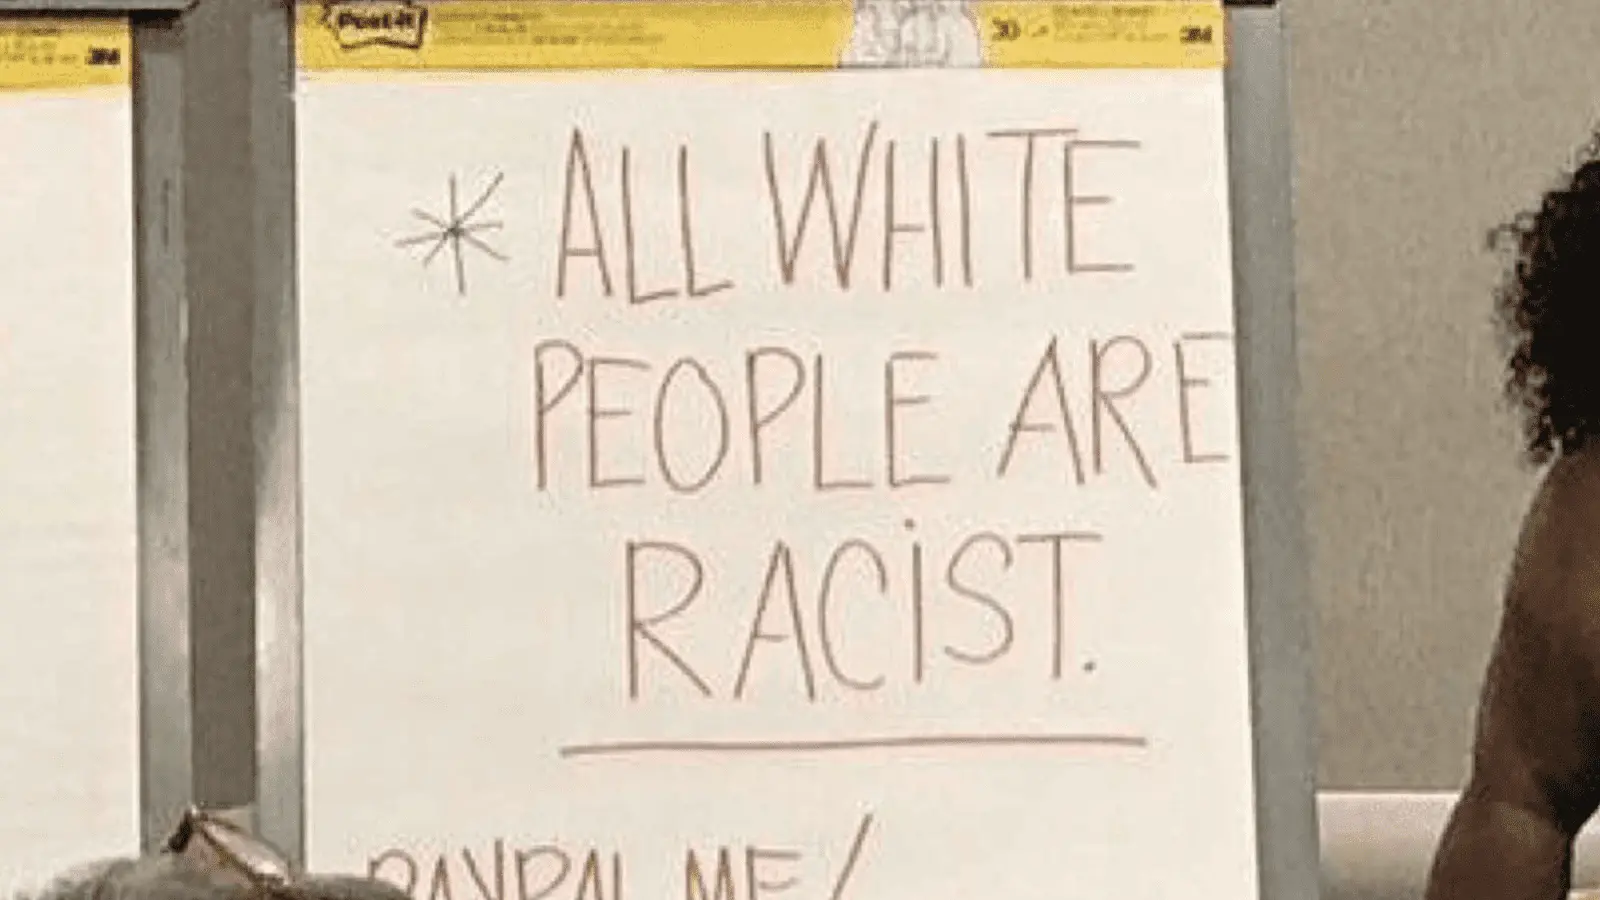 3M
Post-it
30
3M
* ALL WHITE
PEOPLE ARE
RACiST.
PAYPAL.ME/